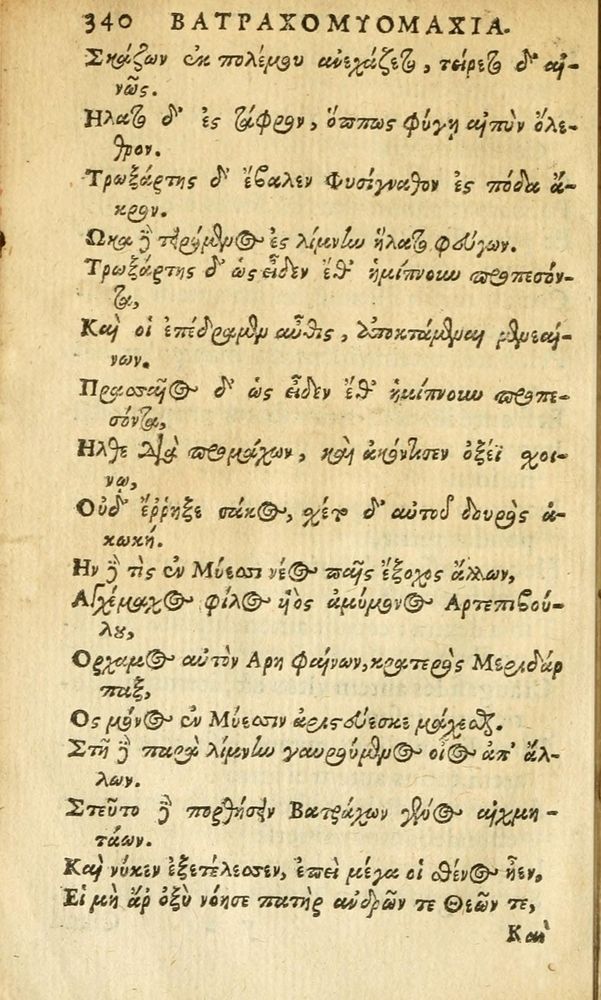 340 ΒΑΤΡΑΧΟΜΥΟΜΑΧΙΑ.
Σκάζων ἐκ πολέμου ἀνεχάζετο, τείρετο δ' αἰ-
νῶς.
Ηλατο δ' ἐς τάφρον, ὅππως φύγῃ αἰπὺν ὄλε-
θρον.
Τρωξάρτης δ' ἔβαλεν Φυσίγναθον ἐς πόδα ἄ-
κρον.
Ωκα δὲ τειρόμενος ἐς λίμνην ἥλατο φεύγων.
Τρωξάρτης δ' ὡς εἶδεν ἔθ' ἡμίπνοιω προπεσόν-
τα,
Καὶ οἱ ἐπέδραμεν αὖθις, ἀποκτάμεναι μενεαί-
νων.
Πρασσαῖος δ' ὡς εἶδεν ἔθ' ἡμίπνοιω προπε-
σόντα,
Ηλθε διὰ προμάχων, καὶ ἀκόντισεν ὀξέϊ χοι-
νῳ,
Οὐδ' ἔῤῥηξε σάκος, χέτο δ' αὐτοῦ δουρὸς ἀ-
κωκή.
Ην δέ τὶς ἐν Μύεσσι νέος παῖς ἔξοχος ἄλλων,
Αἰχέμαχος φίλος ἡὸς ἀμύμονος Αρτεπιβού-
λου,
Ορχαμος αὐτὸν Αρη φαίνων, κρατερὸς Μεριδάρ
παξ,
Ος μόνος ἐν Μύεσσιν ἀρισεύεσκε μάχεσθαι.
Στῆ δὲ παρὰ λίμνην γαυρούμενος οἶος ἀπ' ἄλ-
λων.
Στεῦτο δὲ πορθήσειν Βατράχων γένος αἰχμη-
τάων.
Καὶ νύκεν ἐξετέλεσσεν, ἐπεὶ μέγα οἱ σθένος ἦεν,
Εἰ μὴ ἄρ ὀξὺ νόησε πατὴρ ἀνδρῶν τε Θεῶν τε,
Καὶ